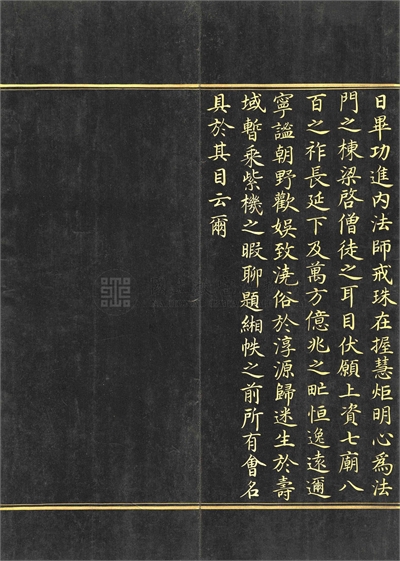 日畢功進內法師戒珠在握慧炬明心為法
門之棟梁啓僧徒之耳目伏願上資七廟八
百之祚長延下及萬方億兆之甿恒逸遠邇
寧謐朝野歡娛致澆俗於淳源歸迷生於壽
域暫乘紫機之暇聊題緗帙之前所有會名
具於其目云爾